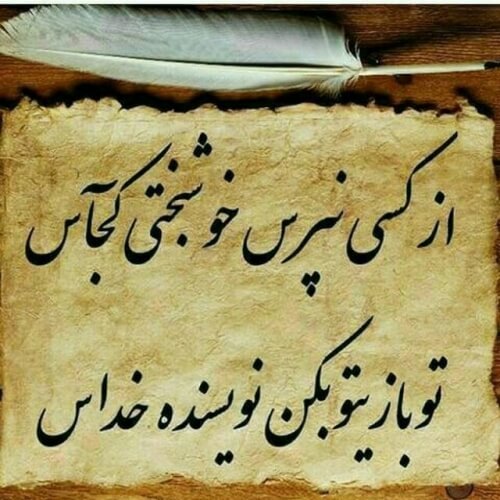 از کسی نپرس خوشبختی کجآس
تو بازیتو بکن نویسنده خداس